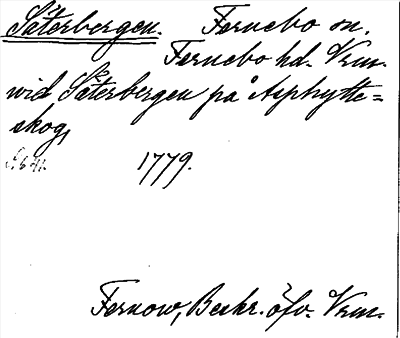 Säterbergen. Fernebo sn.
Fernebo hd. Vrm.
wid Säterbergen på Asphytte=
skog,
S. 641. 1779.
Fernow, Beskr. öfv. Vrm.